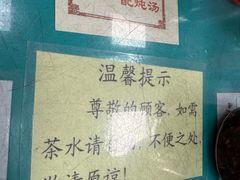 配炖汤
温馨提示
尊敬的顾客,如需
茶水请自 不便之处,
请原谅!